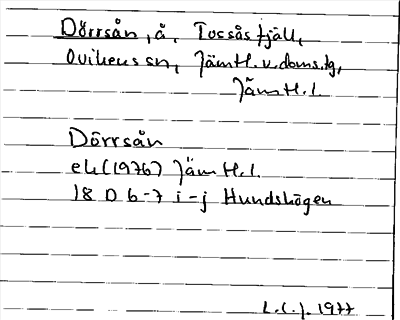 Dörrsån, å, Tossåsfjäll,
Ovikens sn, Jämtl. v. doms.tg,
Jämtl. l.
Dörrsån
ek (1976) Jämtl. l.
18 D 6-7 i-j Hundshögen
L.C.J. 1977